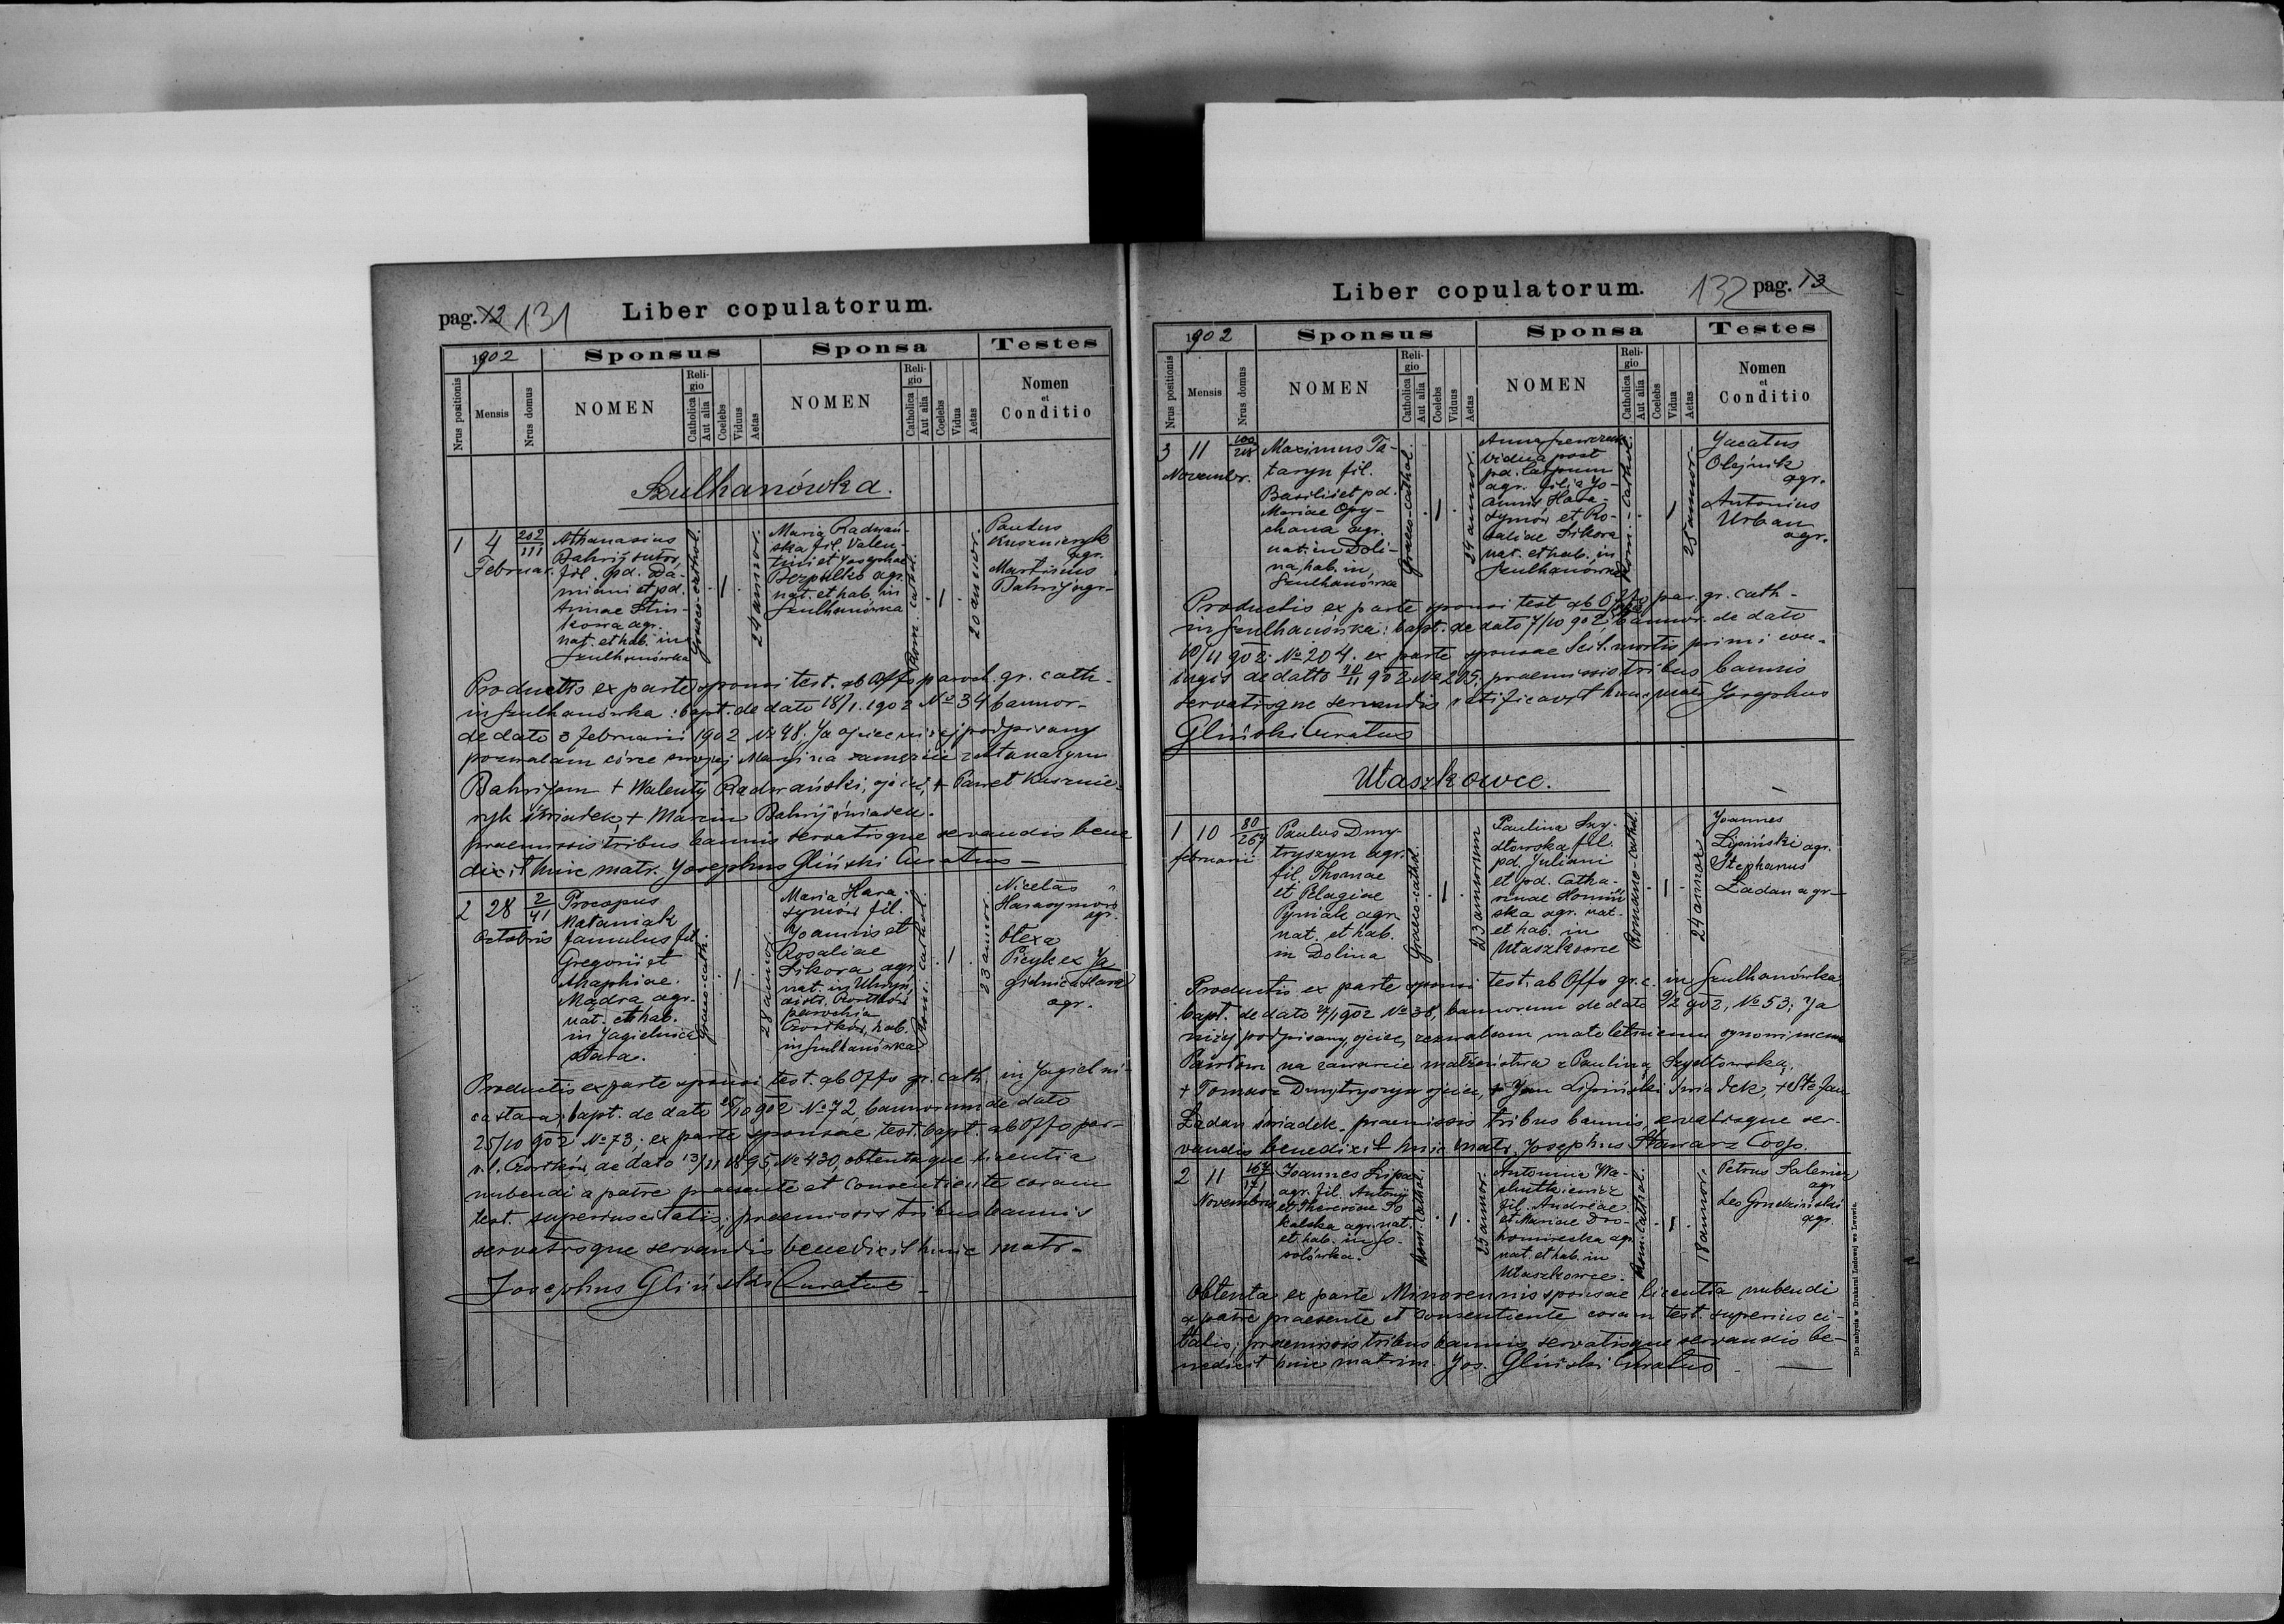 pag. 12 131
Liber copulatorum.
1902
Sponsus
Sponsa
Testes
Nrus positionis
Mensis
Nrus domus
NOMEN
Religio
Catholica
Aut alia
Coelebs
Viduus
Aetas
NOMEN
Religio
Catholica
Aut alia
Coelebs
Vidua
Aetas
Nomen
et
Conditio
Szulhanówka.
1
4
Februar.
202
111
Athanasius
Bahrij sutor,
fil. pd. Da-
miani et pd.
Annae
agr.
nat. et hab. in
Szulhanówka
Graeco-cathol.
1
24 annor.
Maria Radwań-
ska fil. Valen-
tini et Josephae
Bezpalko agr.
nat. et hab. in
Szulhanówka
Rom. cathol.
1
20 annor.
Paulus
Kusznieryk
agr.
Martinus
Bahrij agr.
Productis ex parte sponsi test. ab Offo paroch. gr. cath.
in Szulhanówka: bapt. de dato 18/1. 1902 No 34 bannor.
de dato 3 februarii 1902 No 48. Ja ojciec niżej podpisany
pozwalam córce swojej Maryi na zamęście z Atanazym
Bahrijem + Walenty Radwański, ojciec, + Paweł Kusznie-
ryk świadek, + Marcin Bahrij świadek.
praemissis tribus bannis servatisque servandis bene
dixit hunc matr. Josephus Gliński Curatus
2
28
Octobris
2
41
Procopius
Mataniak
famulus fil.
Gregorii et
Ahaphiae
Mądra agr.
nat. et hab.
in Jagielnica
stara.
Graeco-cath.
1
28 annor.
Maria Hara-
symów fil.
Joannis et
Rosaliae
Sikora agr.
nat. in
distr. Czortków
parochia
Czortków, hab.
in Szulhanówka
Rom. cathol.
1
23 annor.
Nicetas
Harasymów
agr.
Olexa
Picyk ex Ja
gielnica stara
agr.
Productis ex parte sponsi test. ab Offo gr. cath. in Jagielni-
ca stara; bapt. de dato 25/10 902 No 72, bannorum de dato
25/10 902 No 73; ex parte sponsae test. bapt. ab Offo par-
r. l. Czortków de dato 13/11 1895 No 430, obtentaque licentia
nubendi a patre praesente et consentiente coram
test. superius citatis; praemissis tribus bannis
servatisque servandis benedixit hunc matr.
Josephus Gliński Curatus
Liber copulatorum.
132 pag. 13
1902
Sponsus
Sponsa
Testes
Nrus positionis
Mensis
Nrus domus
NOMEN
Religio
Catholica
Aut alia
Coelebs
Viduus
Aetas
NOMEN
Religio
Catholica
Aut alia
Coelebs
Vidua
Aetas
Nomen
et
Conditio
3
11
Novembr.
100
Maximus Ta-
taryn fil.
Basilii et pd.
Mariae Opy-
chana agr.
nat. in Doli-
na, hab. in
Szulhanówka
Graeco-cathol.
1
24 annor.
Anna
vidua post
pd.
agr. filia Jo-
annis Hara-
symów et Ro-
saliae Sikora
nat. et hab. in
Szulhanówka
Rom. cathol.
1
25 annor.
Jacatus
Olejnik
agr.
Antonius
Urban
agr.
Productis ex parte sponsi test. ab Offo par. gr. cath.
in Szulhanówka: bapt. de dato 7/10 902, bannor. de dato
10/11 902 No 204. ex parte sponsae mortis primi con-
iugis de datto 902 No 205; praemissis tribus bannis
servatisque servandis ratificavit hunc matr. Josephus
Gliński Curatus
Ułaszkowce.
1
10
februarii
80
264
Paulus Dmy-
tryszyn agr.
fil. Thomae
et Pelagiae
Pyniak agr.
nat. et hab.
in Dolina
Graeco-cathol.
1
23 annorum
Paulina Szy-
dłowska fil.
pd. Juliani
et pd. Catha-
rinae
agr. nat.
et hab. in
Ułaszkowce
Romano-cathol.
1
24 annor
Joannes
Lipiński agr.
Stephanus
Ładan agr
Productis ex parte sponsi test. ab Offo gr. c. in Szulhanówka
bapt. de dato 1902 No 38, bannorum de dato 9/2 902, No 53; Ja
niżej podpisany, ojciec, zezwalam małoletniemu synowi memu
Pawłowi na zawarcie małżeństwa z Pauliną Szydłowską,
+ Tomasz Dmytryszyn ojciec, + Jan Lipiński świadek, + Stefan
Ładan świadek. praemissis tribus bannis, servatisque ser-
vandis benedixit hunc matr. Josephus Stawarz Coop.
2
11
Novembris
164
171
Joannes Lipa
agr. fil. Antonii
et Theresiae So
kalska agr. nat.
et hab. in So-
solówka.
Rom. cathol.
1
25 annor.
Antonina
fil. Andreae
et Mariae Dro-
homirecka agr.
nat. et hab. in
Ułaszkowce.
Rom. Cathol.
1
18 annor.
Petrus
agr.
Leo Grudziński
agr.
Obtenta ex parte Minorennis sponsae licentia nubendi
a patre praesente et consentiente coram test. superius ci-
tatis; praemissis tribus bannis servatisque servandis be-
nedixit hunc matrim. Jos. Gliński Curatus
Do nabycia w Drukarni Ludowej we Lwowie.